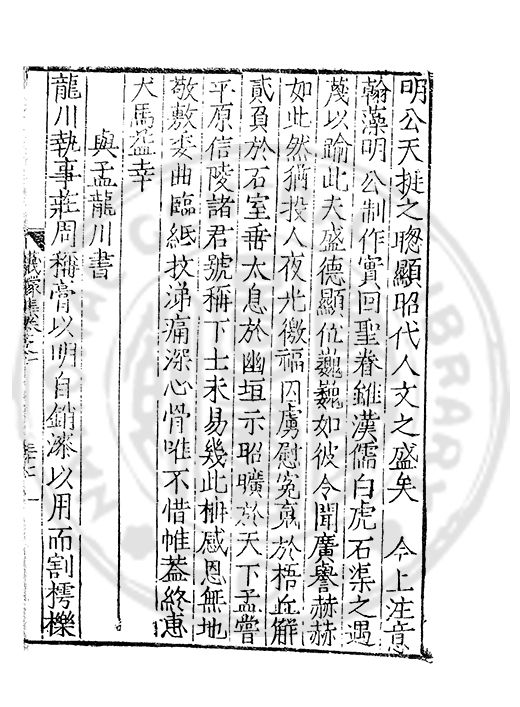 明公天挺之聰顯昭代人文之盛矣　今上注意
翰藻明公制作實回聖眷雖漢儒白虎石渠之遇
蔑以踰此夫盛德顯位巍巍如彼令聞廣譽赫赫
如此然猶投人夜光徼福囚虜慰冤䰟於梧丘解
貳負於石室垂太息於幽垣示昭曠於天下孟嘗
平原信陵諸君號稱下士未易幾此栅感恩無地
敬敷委曲臨紙抆涕痛深心骨唯不惜帷葢終惠
犬馬益幸
與孟龍川書
龍川執事莊周稱膏以明自銷漆以用而割樗櫟